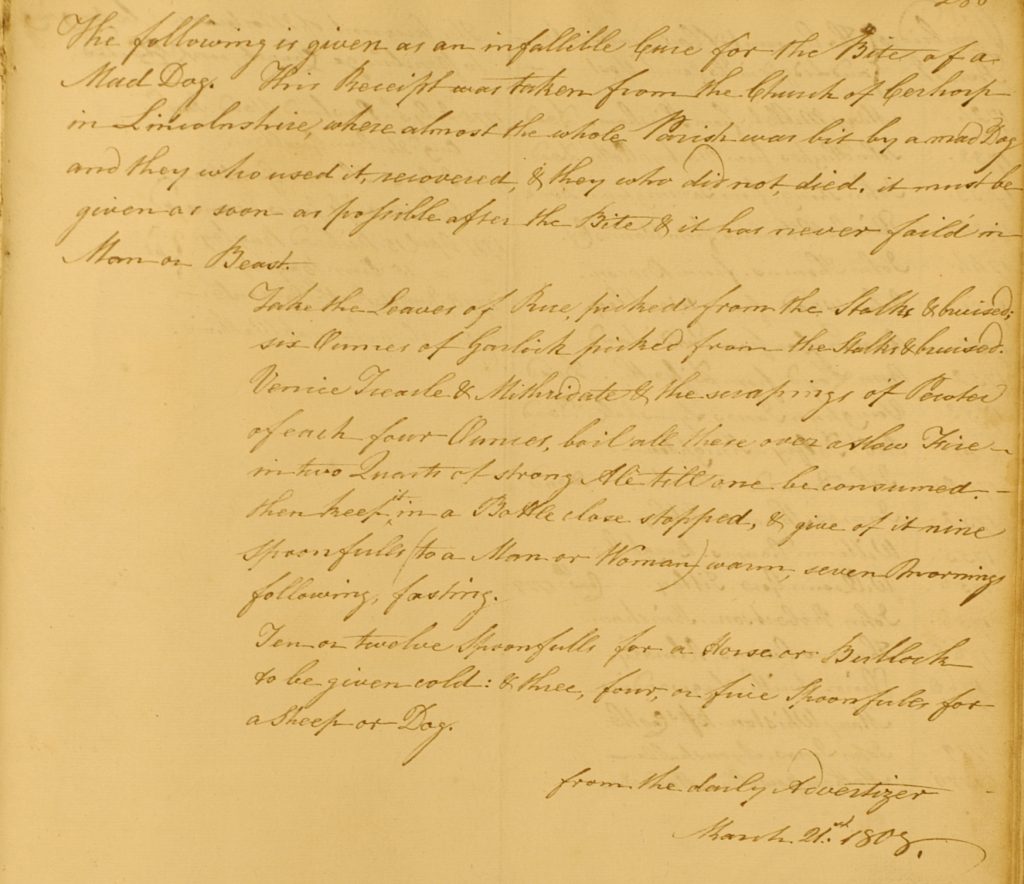 The following is given as an infallible Cure for the Bite of a
Mad Dog. This Receipt was taken from the Church of Certhorp
in Lincolnshire, where almost the whole Parish was bit by a mad Dog
and they who used it, recovered, & they who did not, died. it must be
given as soon as possible after the Bite & it has never faild in
Man or Beast.
Take the Leaves of Rue, picked from the Stalks & bruised;
six Ounces of Garlick picked from the Stalks & bruised.
Venice Treacle & Mithridate & the scrapings of Pewter
of each four Ounces, boil all these over a slow Fire
in two Quarts of strong Ale till one be consumed.
then keep it in a Bottle close stopped, & give of it nine
Spoonfulls (to a Man or Woman) warm, seven Mornings
following, fasting.
Ten or twelve Spoonfulls for a Horse or Bullock
to be given cold: & three, four, or five Spoonfuls for
a Sheep or Dog.
from the daily Advertizer
March 21.st 1808.